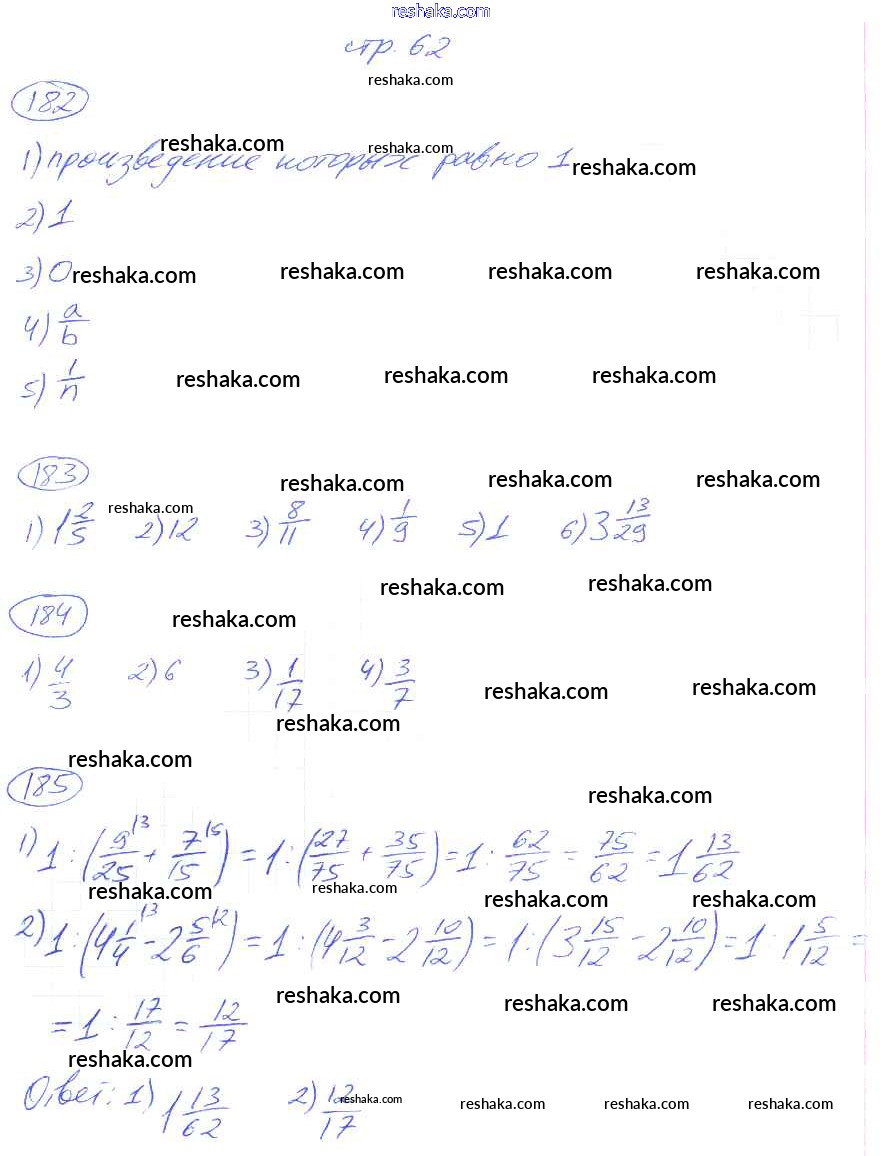 reshaka.com
стр. 62
reshaka.com
182
reshaka.com reshaka.com
1) произведение которых равно 1 reshaka.com
2) 1
3) 0 reshaka.com reshaka.com reshaka.com reshaka.com
4) a/b
5) 1/n reshaka.com reshaka.com reshaka.com
183 reshaka.com reshaka.com reshaka.com
1) 1 2/5 reshaka.com 2) 12 3) 8/11 4) 1/9 5) 1 6) 3 13/29
reshaka.com reshaka.com
184 reshaka.com
1) 4/3 2) 6 3) 1/17 4) 3/7 reshaka.com reshaka.com
reshaka.com
reshaka.com
185 reshaka.com
1) 1 : (9/25 |3 + 7/15 |5) = 1 : (27/75 + 35/75) = 1 : 62/75 = 75/62 = 1 13/62
reshaka.com reshaka.com reshaka.com reshaka.com
2) 1 : (4 1/4 |3 - 2 5/6 |2) = 1 : (4 3/12 - 2 10/12) = 1 : (3 15/12 - 2 10/12) = 1 : 1 5/12 =
reshaka.com reshaka.com reshaka.com
= 1 : 17/12 = 12/17
reshaka.com
Ответ: 1) 1 13/62 2) 12/17 reshaka.com reshaka.com reshaka.com reshaka.com